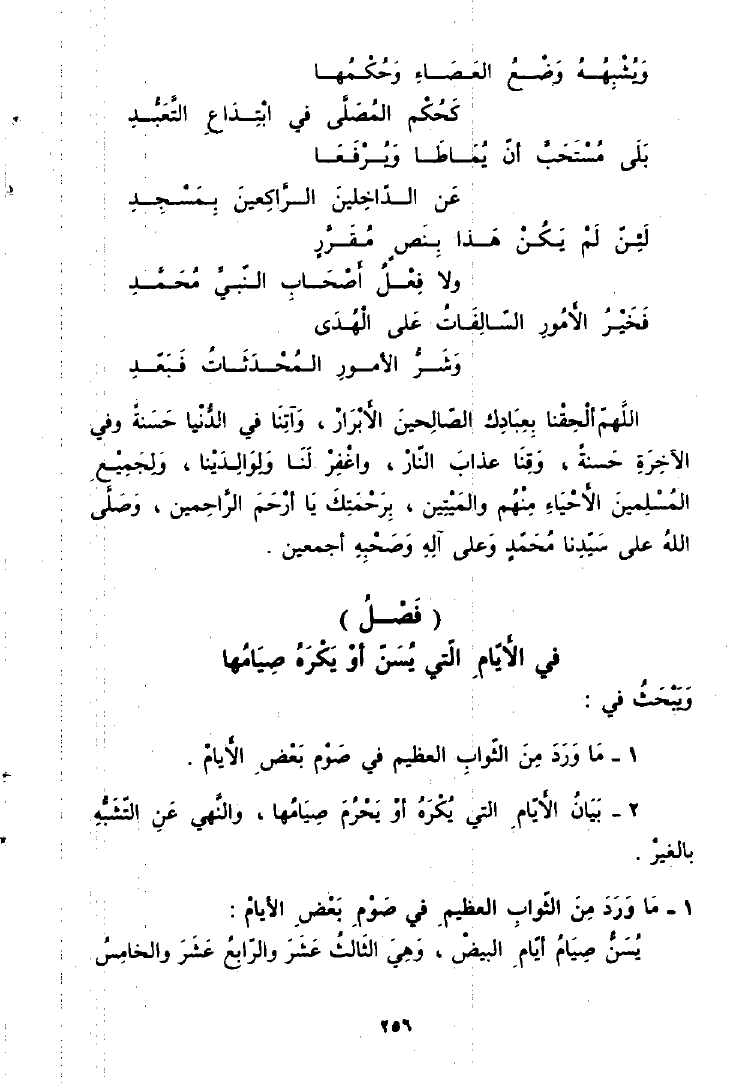 وَيُشْبِهُهُ وَضْعُ العَصَاءِ وَحُكْمُها
كَحُكْمِ المُصَلَّى في ابْتِدَاعِ التَّعَبُّدِ
بَلَى مُسْتَحَبٌّ أنْ يُمَاطَا وَيُرْفَعَا
عَنِ الدّاخِلِينَ الرّاكِعينَ بِمَسْجِدِ
لَئِنْ لَمْ يَكُنْ هَذا بِنَصٍ مُقَرَّرٍ
ولا فِعْلُ أَصْحَابِ النّبيِّ مُحَمَّدِ
فَخَيْرُ الأمُورِ السّالِفَاتُ عَلى الْهُدَى
وَشَرُّ الأمورِ المُحْدَثَاتُ فَبَعّدِ
اللَّهمّ ألْحِقْنا بِعِبَادِك الصّالِحينَ الأبْرَارْ ، وَآتِنَا في الدُّنْيا حَسَنةً وفي
الآخِرَةِ حَسنةً ، وَقِنا عذابَ النّارْ ، واغْفِرْ لَنَا وَلِوَالِدَيْنا ، وَلِجَمِيْعِ
المُسْلِمينَ الأحْيَاءِ مِنْهُم والمَيّتِين ، بِرَحْمَتِكَ يَا أرْحَمَ الرَّاحِمين ، وَصَلَّى
اللهُ على سَيّدِنا مُحَمّدٍ وَعلى آلِهِ وَصَحْبِهِ أجمعين .
( فَصْلُ )
في الأَيّامِ الّتي يُسَنّ أوْ يَكْرَهُ صِيَامُها
وَيَبْحَثُ في :
١ ـ مَا وَرَدَ مِنَ الثّوابِ العظيم في صَوْمِ بَعْضِ الأيامْ .
٢ ـ بَيَانُ الأيّامِ التي يُكْرَهُ أوْ يَحْرُمَ صِيَامُها ، والنَّهي عَنِ التّشَبُّهِ
بالغيرْ .
١ ـ مَا وَرَدَ مِنَ الثّوابِ العظيمِ في صَوْمِ بَعْضِ الأيامْ :
يُسَنُّ صِيَامُ أيّامِ البيضْ ، وَهِيَ الثّالثُ عَشَرَ والرّابعُ عَشَرَ والخامِسُ
٢٥٦